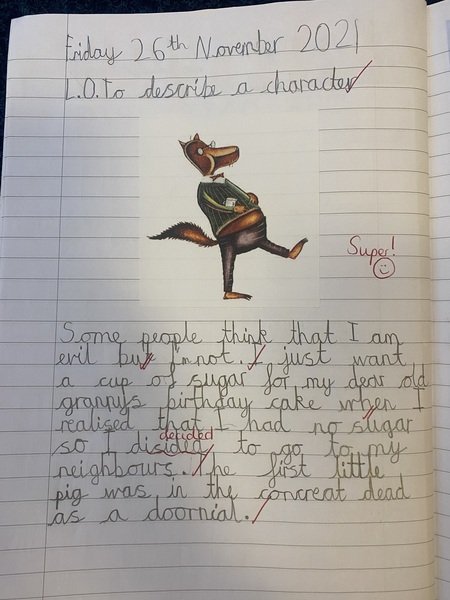 Friday 26th November 2021
L.O.To describe a character
Super!
Some people think that I am
evil but I'm not. I just want
a cup of sugar for my dear old
grannys birthday cake when I
realised that I had no sugar
decided
so I disided to go to my
neighbours. The first little
pig was in the concreat dead
as a doornial.